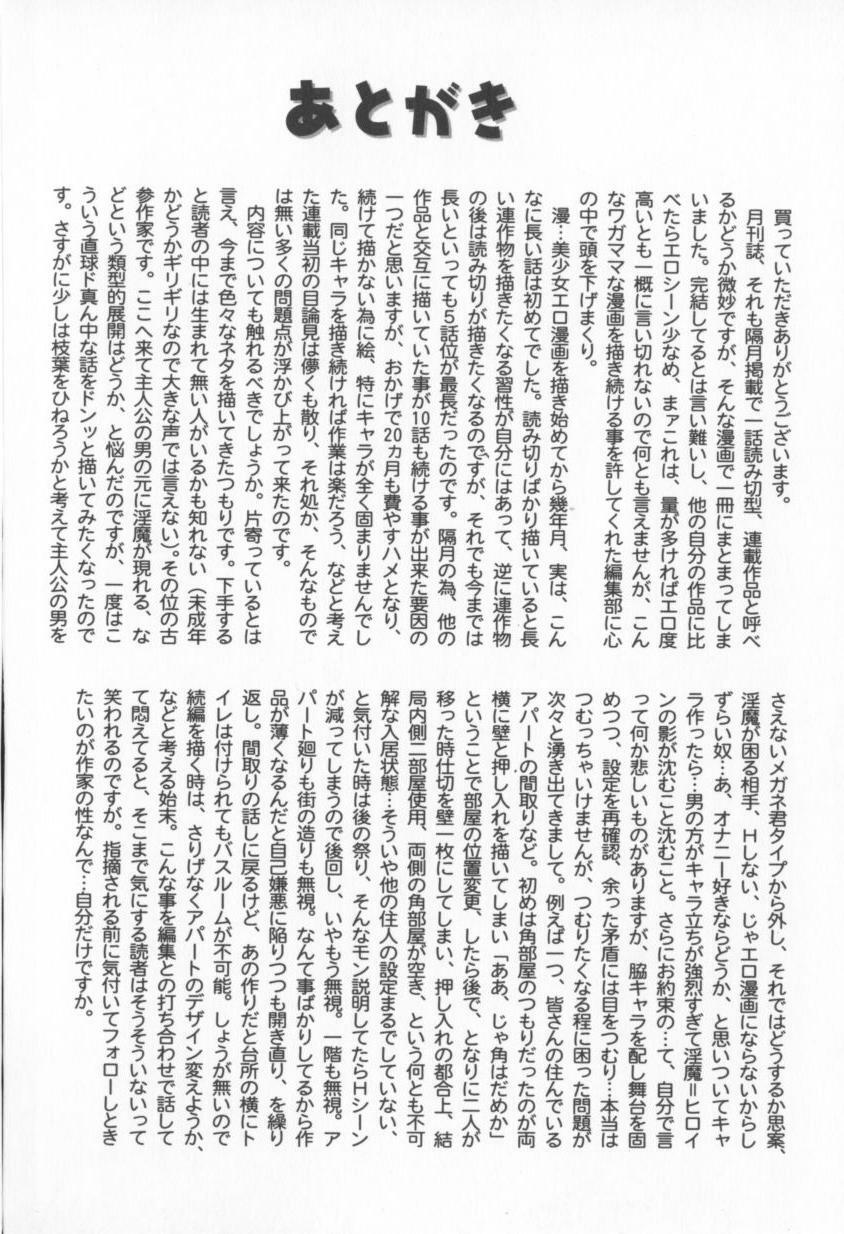 あとがき
買っていただきありがとうございます。
月刊誌、それも隔月掲載で一話読み切型、連載作品と呼べ
るかどうか微妙ですが、そんな漫画で一冊にまとまってしま
いました。完結してるとは言い難いし、他の自分の作品に比
べたらエロシーン少なめ、まァこれは、量が多ければエロ度
高いとも一概に言い切れないので何とも言えませんが、こん
なワガママな漫画を描き続ける事を許してくれた編集部に心
の中で頭を下げまくり。
漫…美少女エロ漫画を描き始めてから幾年月、実は、こん
なに長い話は初めてでした。読み切りばかり描いていると長
い連作物を描きたくなる習性が自分にはあって、逆に連作物
の後は読み切りが描きたくなるのですが、それでも今までは
長いといっても5話位が最長だったのです。隔月の為、他の
作品と交互に描いていた事が10話も続ける事が出来た要因の
一つだと思いますが、おかげで20ヵ月も費やすハメとなり、
続けて描かない為に絵、特にキャラが全く固まりませんでし
た。同じキャラを描き続ければ作業は楽だろう、などと考え
た連載当初の目論見は儚くも散り、それ処か、そんなもので
は無い多くの問題点が浮かび上がって来たのです。
内容についても触れるべきでしょうか。片寄っているとは
言え、今まで色々なネタを描いてきたつもりです。下手する
と読者の中には生まれて無い人がいるかも知れない（未成年
かどうかギリギリなので大きな声では言えない）。その位の古
参作家です。ここへ来て主人公の男の元に淫魔が現れる、な
どという類型的展開はどうか、と悩んだのですが、一度はこ
ういう直球ド真ん中な話をドンッと描いてみたくなったので
す。さすがに少しは枝葉をひねろうかと考えて主人公の男を
さえないメガネ君タイプから外し、それではどうするか思案、
淫魔が困る相手、Hしない、じゃエロ漫画にならないからし
ずらい奴…あ、オナニー好きならどうか、と思いついてキャ
ラ作ったら…男の方がキャラ立ちが強烈すぎて淫魔＝ヒロイ
ンの影が沈むこと沈むこと。さらにお約束の…て、自分で言
って何か悲しいものがありますが、脇キャラを配し舞台を固
めつつ、設定を再確認、余った矛盾には目をつむり…本当は
つむっちゃいけませんが、つむりたくなる程に困った問題が
次々と湧き出てきまして。例えば一つ、皆さんの住んでいる
アパートの間取りなど。初めは角部屋のつもりだったのが両
横に壁と押し入れを描いてしまい「ああ、じゃ角はだめか」
ということで部屋の位置変更、したら後で、となりに二人が
移った時仕切を壁一枚にしてしまい、押し入れの都合上、結
局内側二部屋使用、両側の角部屋が空き、という何とも不可
解な入居状態…そういや他の住人の設定まるでしていない、
と気付いた時は後の祭り、そんなモン説明してたらHシーン
が減ってしまうので後回し、いやもう無視。一階も無視。ア
パート廻りも街の造りも無視。なんて事ばかりしてるから作
品が薄くなるんだと自己嫌悪に陥りつつも開き直り、を繰り
返し。間取りの話しに戻るけど、あの作りだと台所の横にト
イレは付けられてもバスルームが不可能。しょうが無いので
続編を描く時は、さりげなくアパートのデザイン変えようか、
などと考える始末。こんな事を編集との打ち合わせで話して
て悶えてると、そこまで気にする読者はそうそういないって
笑われるのですが。指摘される前に気付いてフォローしとき
たいのが作家の性なんで…自分だけですか。